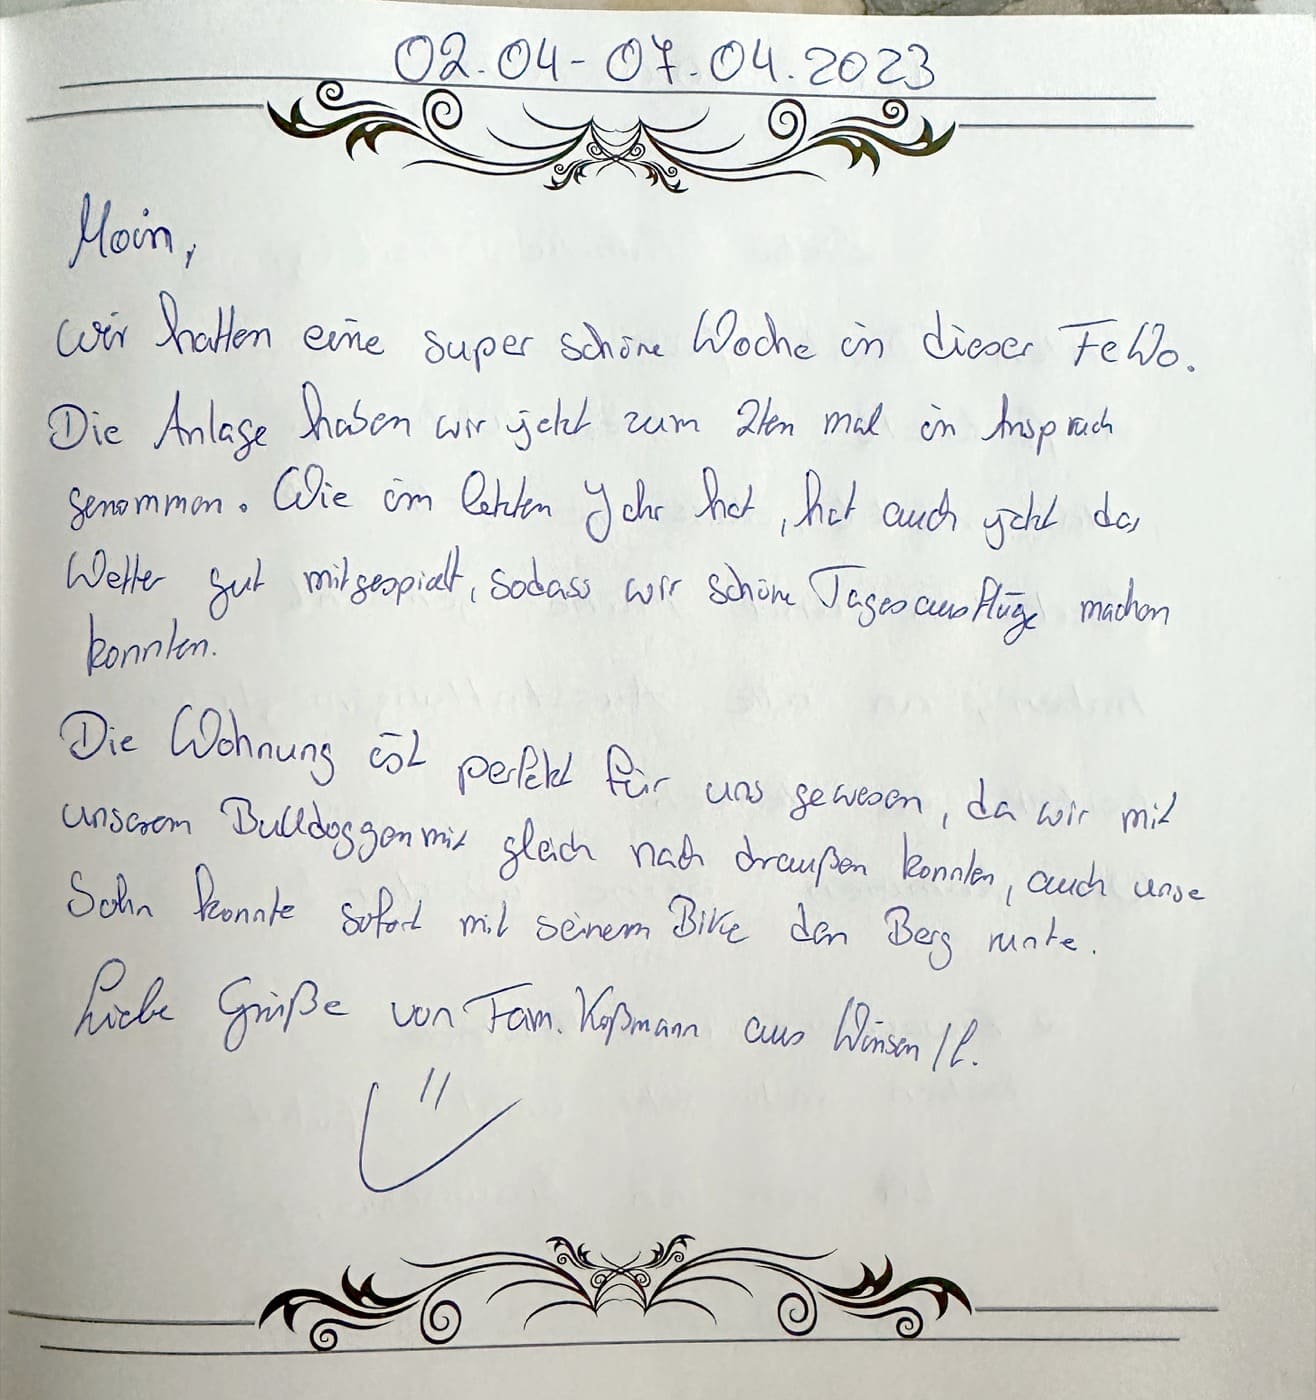 02.04-07.04.2023
Moin,
wir hatten eine super schöne Woche in dieser FeWo.
Die Anlage haben wir jetzt zum 2ten mal in Anspruch
genommen. Wie im letzten Jahr hat, hat auch jetzt das
Wetter gut mitgespielt, sodass wir schöne Tagesausflüge machen
konnten.
Die Wohnung ist perfekt für uns gewesen, da wir mit
unserem Bulldoggenmix gleich nach draußen konnten, auch unse
Sohn konnte sofort mit seinem Bike den Berg runte.
Liebe Grüße von Fam. Koßmann aus Winsen /L.